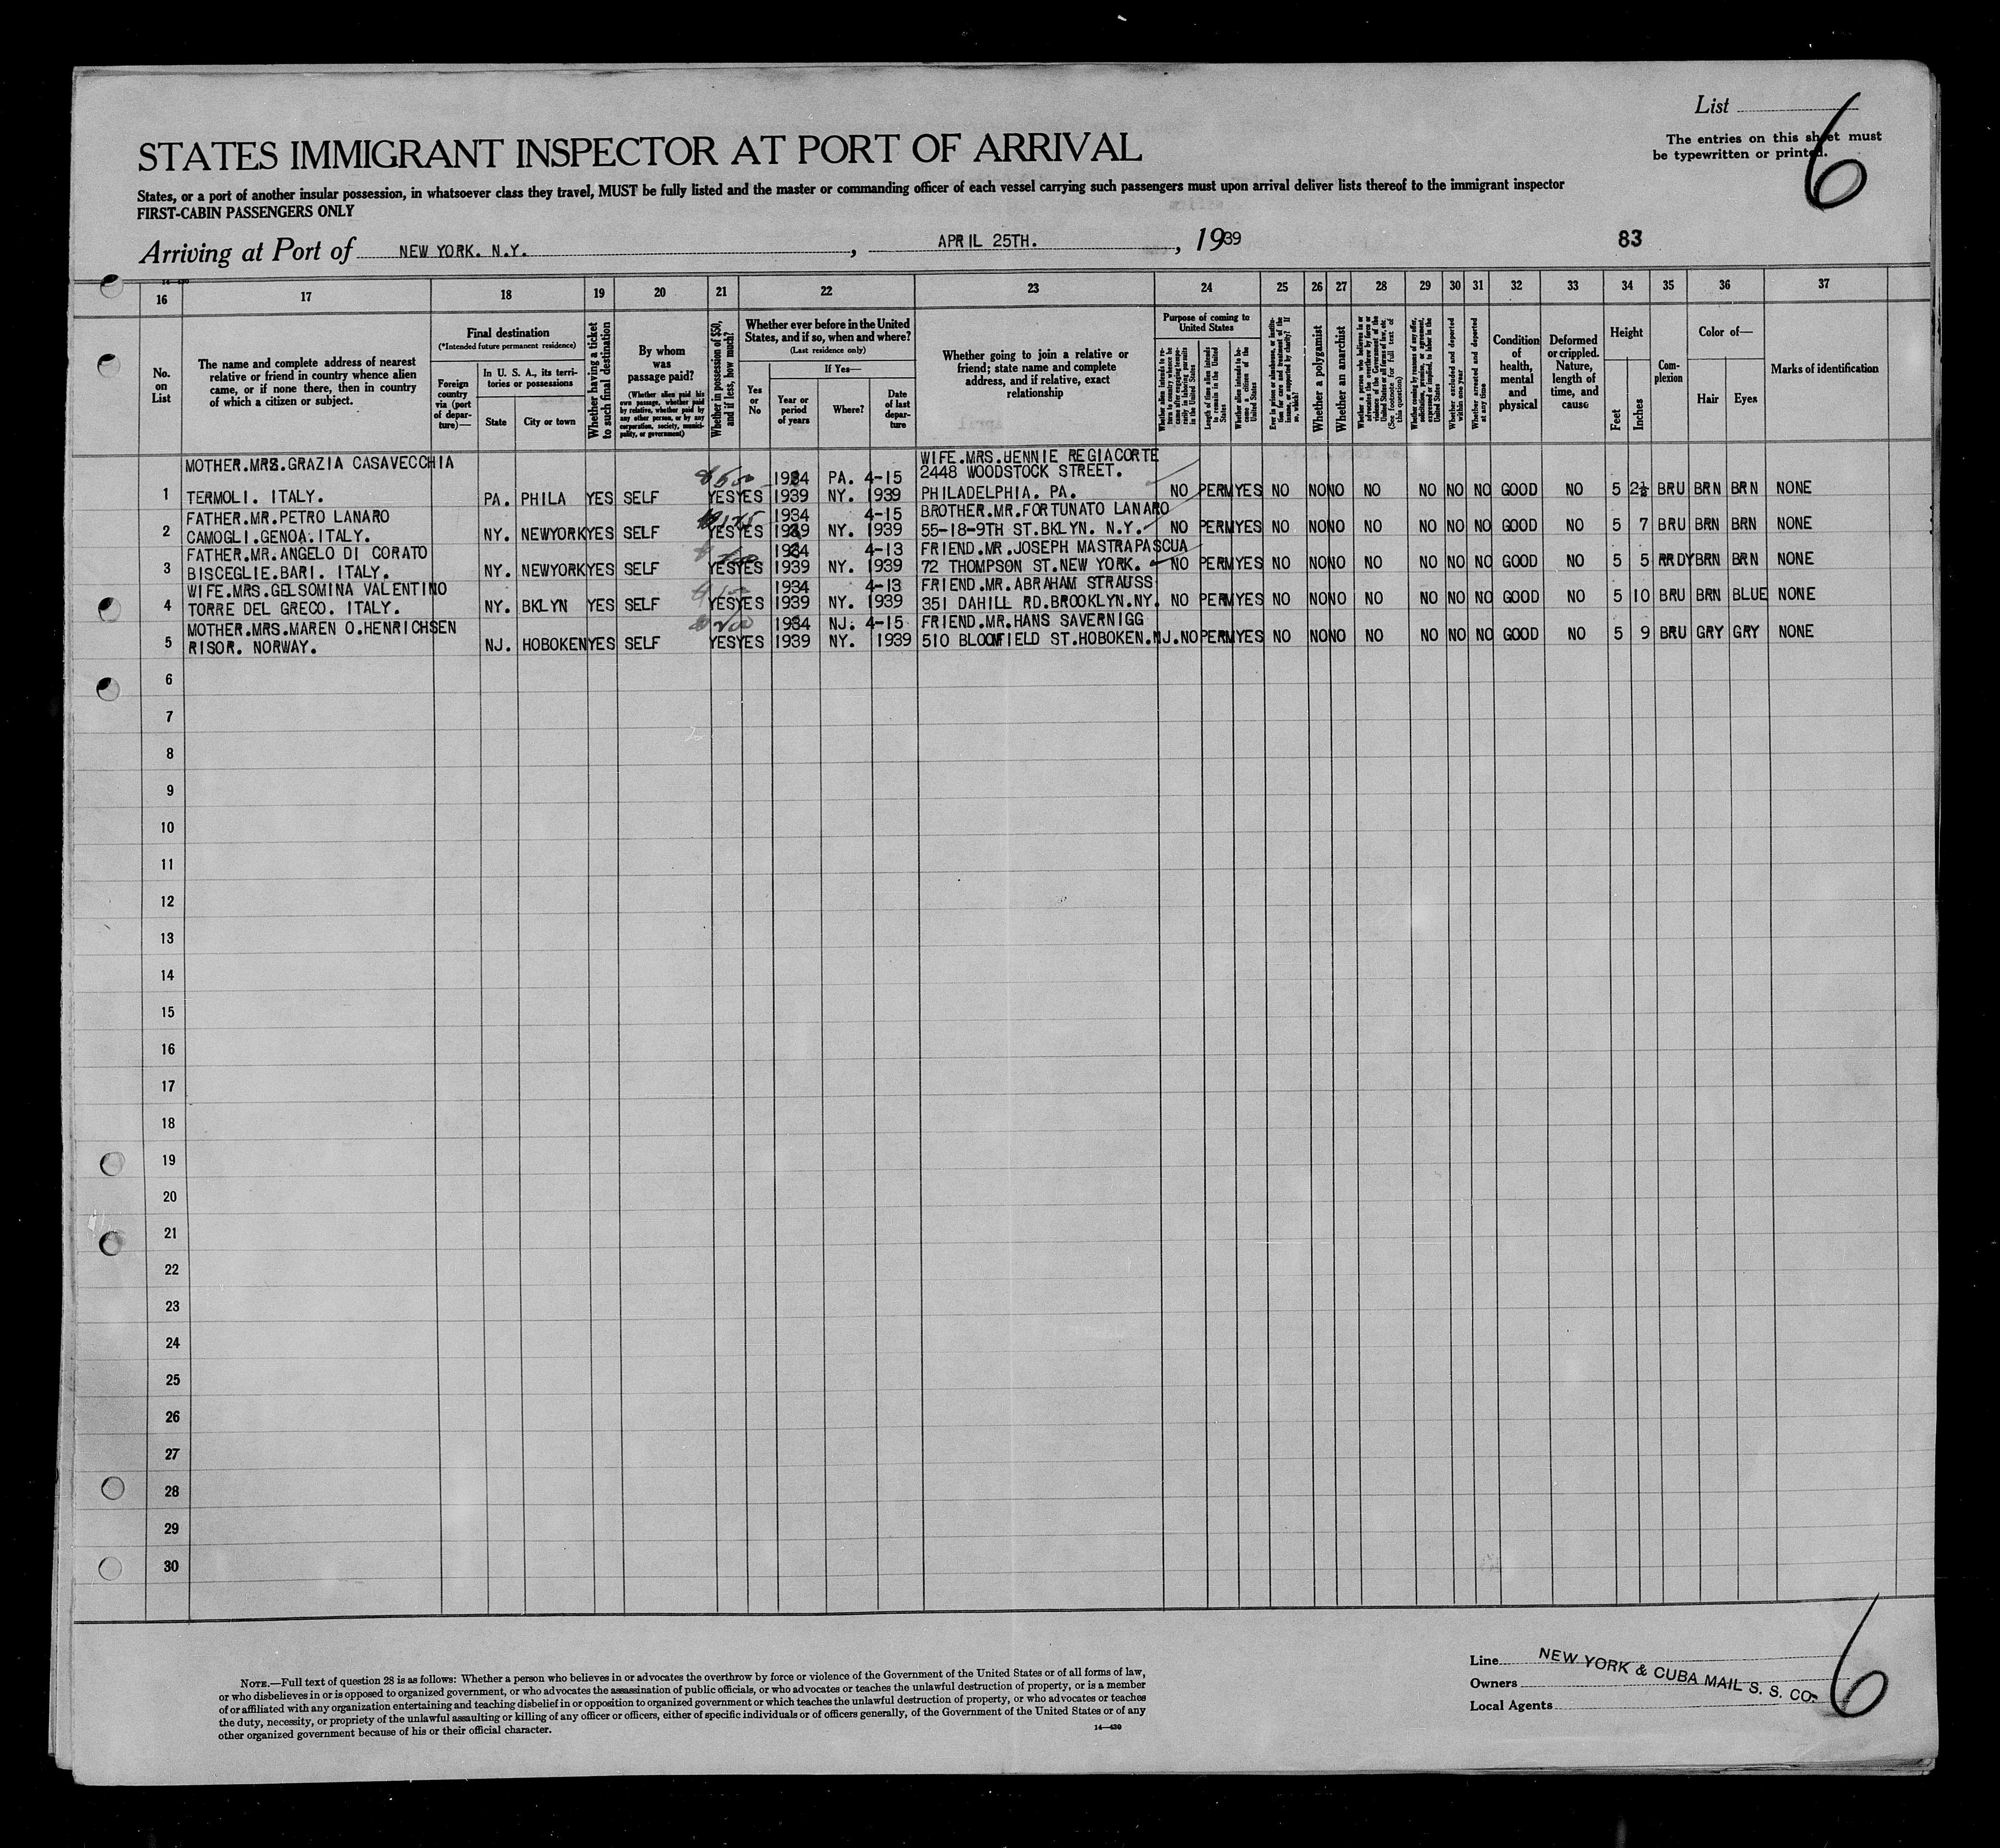 List
6
The entries on this sheet must
be typewritten or printed.
STATES IMMIGRANT INSPECTOR AT PORT OF ARRIVAL
States, or a port of another insular possession, in whatsoever class they travel, MUST be fully listed and the master or commanding officer of each vessel carrying such passengers must upon arrival deliver lists thereof to the immigrant inspector
FIRST-CABIN PASSENGERS ONLY
Arriving at Port of NEW YORK. N.Y. , APRIL 25TH. , 1939
83
16 17 18 19 20 21 22 23 24 25 26 27 28 29 30 31 32 33 34 35 36 37
No. on List
The name and complete address of nearest relative or friend in country whence alien came, or if none there, then in country of which a citizen or subject.
Final destination
(*Intended future permanent residence)
Foreign country via (port of departure)—
In U. S. A., its territories or possessions
State
City or town
Whether having a ticket to such final destination
By whom was passage paid?
(Whether alien paid his own passage, whether paid by relative, whether paid by any other person, or by any corporation, society, municipality, or government)
Whether in possession of $50, and if less, how much?
Whether ever before in the United States, and if so, when and where?
(Last residence only)
Yes or No
If Yes—
Year or period of years
Where?
Date of last departure
Whether going to join a relative or friend; state name and complete address, and if relative, exact relationship
Purpose of coming to United States
Whether alien intends to return to country whence he came after engaging temporarily in laboring pursuits in the United States
Length of time alien intends to remain in the United States
Whether alien intends to become a citizen of the United States
Ever in prison or almshouse, or institution for care and treatment of the insane, or supported by charity? If so, which?
Whether a polygamist
Whether an anarchist
Whether a person who believes in or advocates the overthrow by force or violence of the Government of the United States or all forms of law, etc. (See footnote for full text of this question)
Whether coming by reasons of any offer, solicitation, promise, or agreement, expressed or implied, to labor in the United States
Whether excluded and deported within one year
Whether arrested and deported at any time
Condition of health, mental and physical
Deformed or crippled. Nature, length of time, and cause
Height
Feet
Inches
Complexion
Color of—
Hair
Eyes
Marks of identification
MOTHER.MRS.GRAZIA CASAVECCHIA WIFE.MRS.JENNIE REGIACORTE
$500 1934 PA. 4-15 2448 WOODSTOCK STREET.
1 TERMOLI. ITALY. PA. PHILA YES SELF YES YES 1939 NY. 1939 PHILADELPHIA. PA. NO PERM YES NO NO NO NO NO NO NO GOOD NO 5 2½ BRU BRN BRN NONE
FATHER.MR.PETRO LANARO 1934 4-15 BROTHER.MR.FORTUNATO LANARO
2 CAMOGLI.GENOA.ITALY. NY. NEWYORK YES SELF YES YES 1939 NY. 1939 55-18-9TH ST.BKLYN. N.Y. NO PERM YES NO NO NO NO NO NO NO GOOD NO 5 7 BRU BRN BRN NONE
FATHER.MR.ANGELO DI CORATO 1934 4-13 FRIEND.MR.JOSEPH MASTRAPASCUA
3 BISCEGLIE.BARI. ITALY. NY. NEWYORK YES SELF YES YES 1939 NY. 1939 72 THOMPSON ST.NEW YORK. NO PERM YES NO NO NO NO NO NO NO GOOD NO 5 5 RRDY BRN BRN NONE
WIFE.MRS.GELSOMINA VALENTINO 1934 4-13 FRIEND.MR.ABRAHAM STRAUSS
4 TORRE DEL GRECO. ITALY. NY. BKLYN YES SELF YES YES 1939 NY. 1939 351 DAHILL RD.BROOKLYN.NY. NO PERM YES NO NO NO NO NO NO NO GOOD NO 5 10 BRU BRN BLUE NONE
MOTHER.MRS.MAREN O.HENRICHSEN 1934 NJ. 4-15 FRIEND.MR.HANS SAVERNIGG
5 RISOR. NORWAY. NJ. HOBOKEN YES SELF YES YES 1939 NY. 1939 510 BLOOMFIELD ST.HOBOKEN.NJ. NO PERM YES NO NO NO NO NO NO NO GOOD NO 5 9 BRU GRY GRY NONE
6
7
8
9
10
11
12
13
14
15
16
17
18
19
20
21
22
23
24
25
26
27
28
29
30
NOTE.—Full text of question 28 is as follows: Whether a person who believes in or advocates the overthrow by force or violence of the Government of the United States or of all forms of law,
or who disbelieves in or is opposed to organized government, or who advocates the assassination of public officials, or who advocates or teaches the unlawful destruction of property, or is a member
of or affiliated with any organization entertaining and teaching disbelief in or opposition to organized government or which teaches the unlawful destruction of property, or who advocates or teaches
the duty, necessity, or propriety of the unlawful assaulting or killing of any officer or officers, either of specific individuals or of officers generally, of the Government of the United States or of any
other organized government because of his or their official character.
14—430
Line NEW YORK & CUBA MAIL S. S. CO.
Owners
Local Agents
6